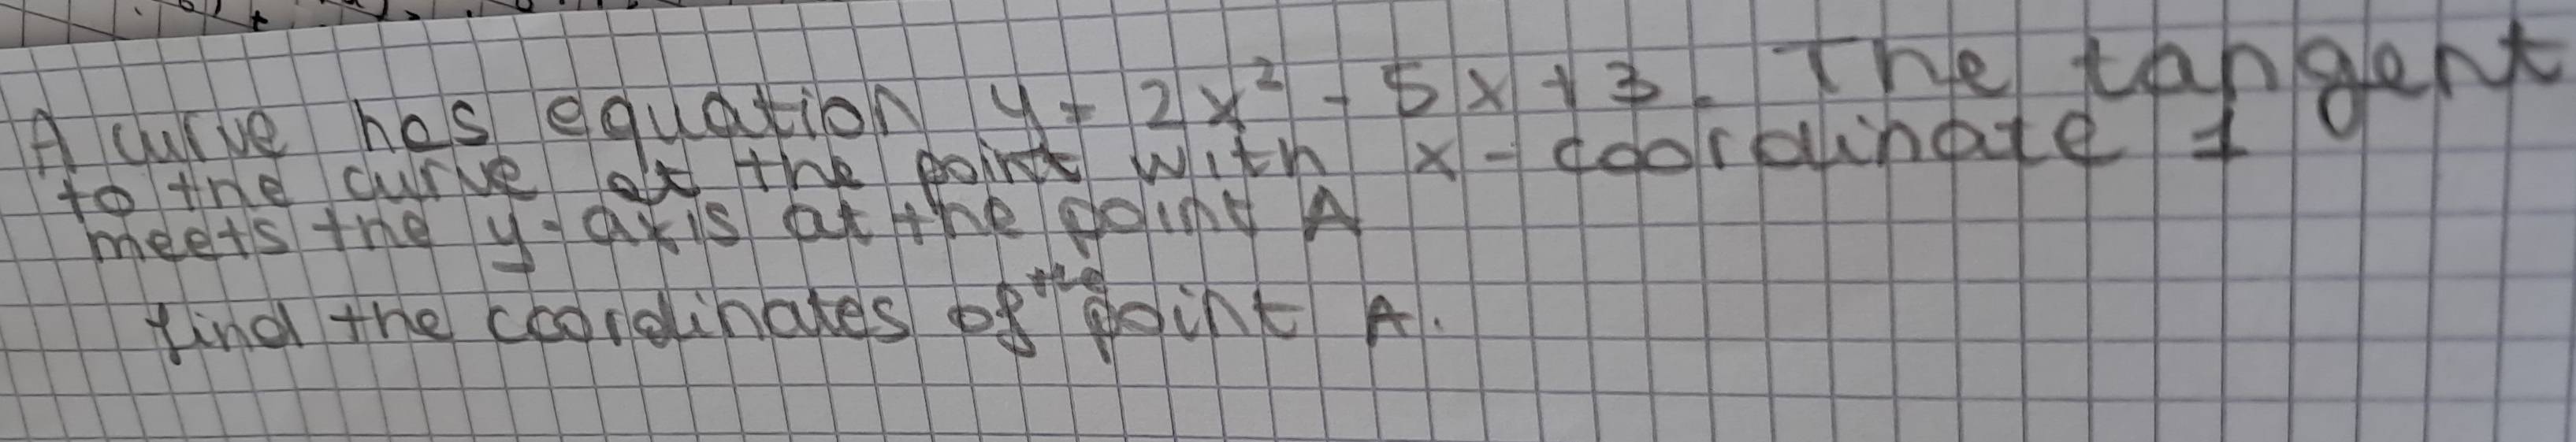 A curve has equation y = 2x² - 5x + 3. The tangent
to the curve at the point with x-coordinate 1
meets the y-axis at the point A
find the coordinates of the point A.